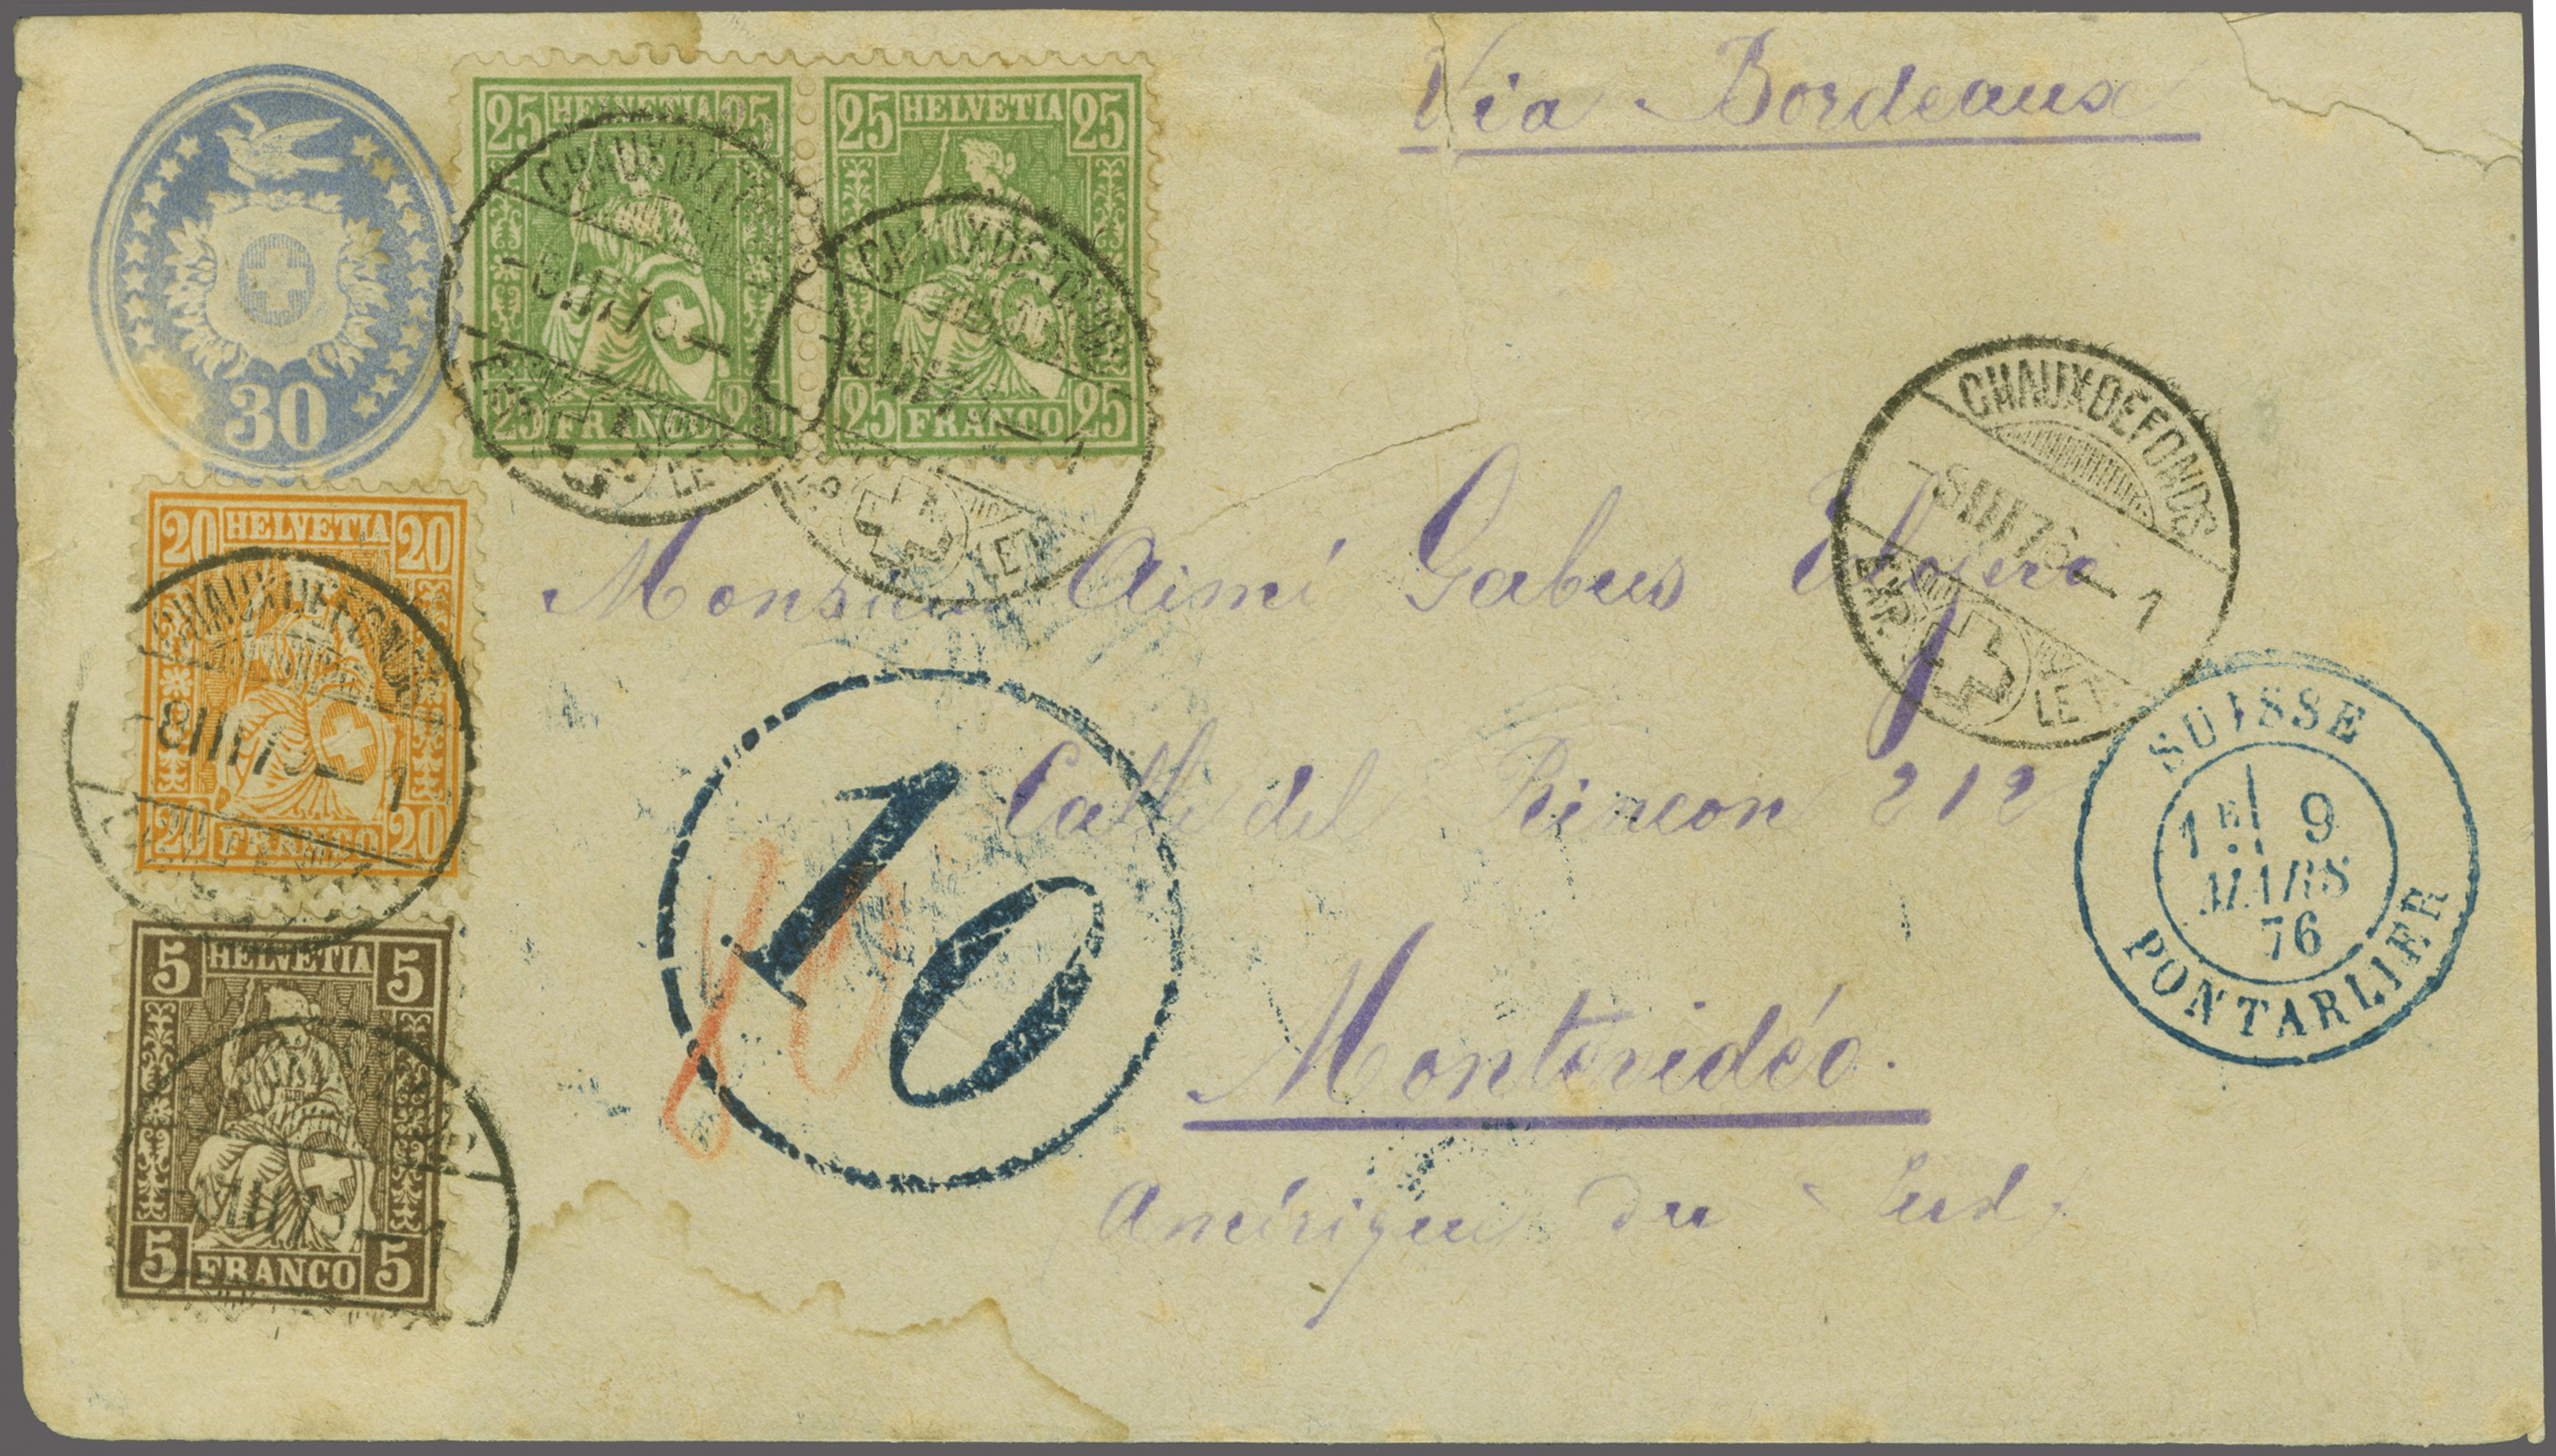 Via Bordeaux
30
25 HELVETIA 25
25 FRANCO 25
25 HELVETIA 25
25 FRANCO 25
CHAUXDEFONDS
CHAUXDEFONDS
CHAUXDEFONDS
-8III76--1
EXP. LET.
Monsieur Aimé Gabus
20 HELVETIA 20
20 FRANCO 20
CHAUXDEFONDS
Calle del Rincon 212
10
SUISSE
1E 9
MARS
76
PONTARLIER
5 HELVETIA 5
5 FRANCO 5
Montevidéo.
Amérique du Sud